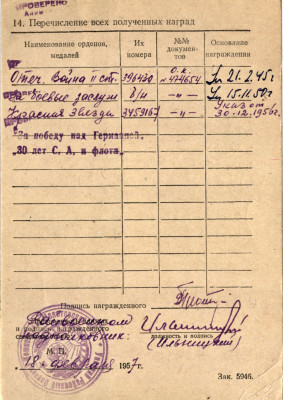 ПРОВЕРЕНО
14. Перечисление всех полученных наград
Наименование орденов, медалей
Их номера
№№ документов
Основание награждения
Отеч. Война II ст. 396420 О.к. № 474654 Ук. 21.2.45г.
За боевые заслуг б/н —"— Ук. 15.11.50г.
Красная Звезда 3459167 —"— Указ от 30.12.1956г.
„За победу над Германией„
„30 лет С. А. и флота„
Подпись награжденного
и подпись награжденного
должность и подпись
М.П.
„18„ февраля 1957г.
Зак. 5946.